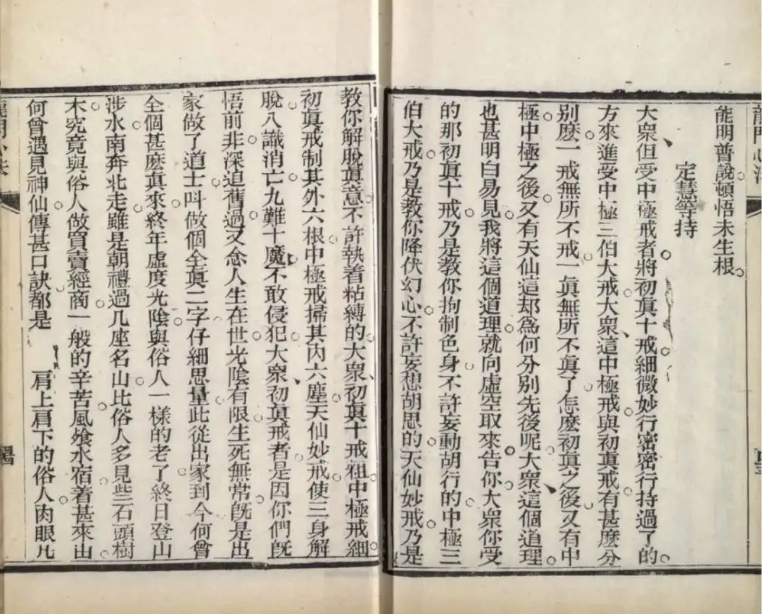 龍門心法
能明普說頓悟未生根
定慧等持
大衆但受中極戒者將初眞十戒細微妙行密密行持過了的
方來進受中極三伯大戒大衆這中極戒與初眞戒有甚麽分
別麽一戒無所不戒一眞無所不眞了怎麽初眞之後又有中
極中極之後又有天仙這却爲何分別先後呢大衆這個道理
也甚明白易見我將這個道理就向虛空取來告你大衆你受
的那初眞十戒乃是教你拘制色身不許妄動胡行的中極三
伯大戒乃是教你降伏幻心不許妄想胡思的天仙妙戒乃是
教你解脫眞意不許執着枯縛的大衆初眞十戒粗中極戒細
初眞戒制其外六根中極戒掃其内六塵天仙妙戒使三身解
脫八識消亡九難十魔不敢侵犯大衆初眞戒者是因你們旣
悟前非深追舊過又念人生在世光陰有限生死無常旣是出
家做了道士呌做個全眞二字仔細思量此從出家到今何曾
全個甚麽眞來終年虛度光陰與俗人一樣的老了終日登山
涉水南奔北走雖是朝禮過几座名山比俗人多見些石頭樹
木究竟與俗人做買賣經商一般的辛苦風飧水宿着甚來由
何曾遇見神仙傳甚口訣都是 肩上肩下的俗人肉眼凡
龍門心法